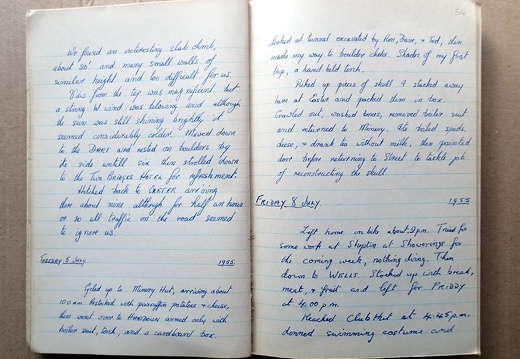 We found an interesting slab climb,
about 50' and many small walls of
similar height and too difficult for us.
View from the top was magnificent but
a strong W wind was blowing and although
the sun was still shining brightly it
seemed considerably colder. Moved down
to the DART and rested on boulders by
its side untill six then strolled down
to the TWO BRIDGES HOTEL for refreshment.
Hitched back to EXETER arriving
there about nine although for half an hour
or so all traffic on the road seemed
to ignore us.
TUESDAY 5 JULY. 1955
up to Mendip Hut, arriving about
10.0 am. with potatoes & cheese,
then went over to armed only with
boiler suit, torch, and a cardboard box.
Looked at tunnel excavated by Ken, Dave, & Ted, then
made my way to boulder choke. Shades of my first
trip, a hand held torch.
Picked up pieces of skull I stacked away
here at Easter and packed them in box.
Crawled out, washed bones, removed boiler suit
and returned to Mendip. Ate boiled spuds,
cheese, & drank tea without milph, then painted
door before returning to Street to tackle job
of reconstructing the skull.
FRIDAY 8 JULY. 1955
Left home on bike about 2pm. Tried for
some work at Shepton at Showerings for
the coming week, nothing doing. Then
down to WELLS. Stocked up with bread,
meat, & fruit and left for PRIDDY
at 4.00 p.m.
Reached Club Hut at 4.45 p.m.
donned swimming costume and